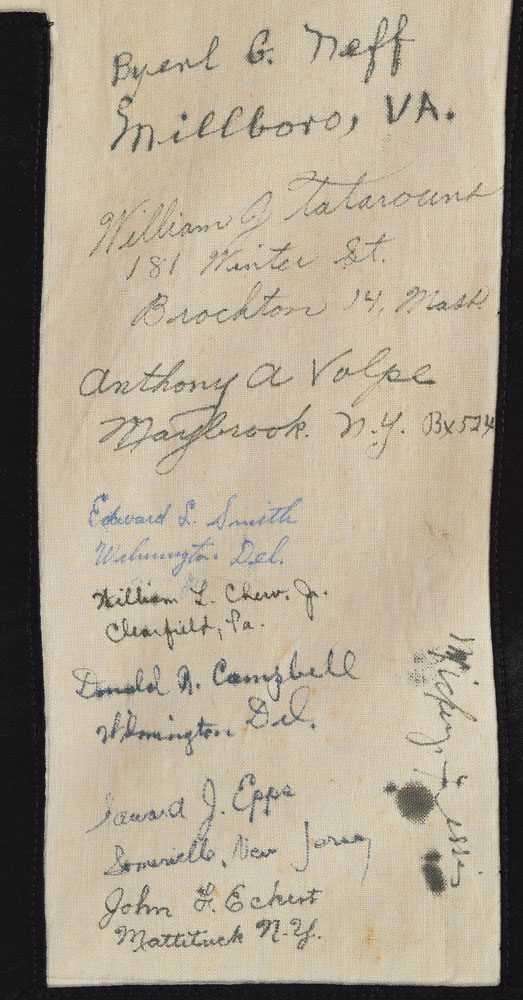 Byerl G. Neff
Millboro, VA.
William J Tatarouns
181 Winter St.
Brockton 14, Mass.
Anthony A Volpe
Maybrook. N.Y. Bx 524
Edward L. Smith
Wilmington Del.
William L. Chew. Jr.
Clearfield, Pa.
Donald R. Campbell
Wilmington Del.
Edward J. Epps
Somerville, New Jersey
John F. Eckert
Mattituck N.Y.
Mickey